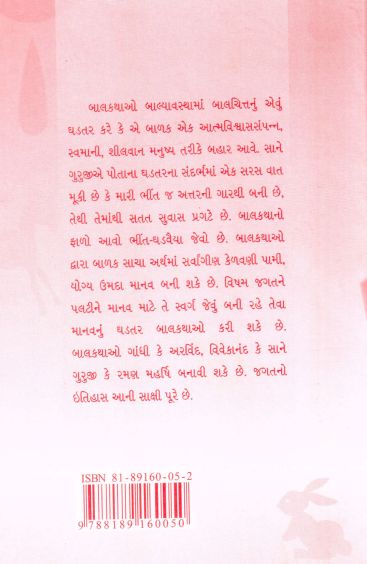 બાલકથાઓ બાલ્યાવસ્થામાં બાલચિત્તનું એવું
ઘડતર કરે કે એ બાળક એક આત્મવિશ્વાસસંપન્ન,
સ્વમાની, શીલવાન મનુષ્ય તરીકે બહાર આવે. સાને
ગુરુજીએ પોતાના ઘડતરના સંદર્ભમાં એક સરસ વાત
મૂકી છે કે મારી ભીંત જ અત્તરની ગારથી બની છે,
તેથી તેમાંથી સતત સુવાસ પ્રગટે છે. બાલકથાનો
ફાળો આવો ભીંત-ઘડવૈયા જેવો છે. બાલકથાઓ
દ્વારા બાળક સાચા અર્થમાં સર્વાંગીણ કેળવણી પામી,
યોગ્ય ઉમદા માનવ બની શકે છે. વિષમ જગતને
પલટીને માનવ માટે તે સ્વર્ગ જેવું બની રહે તેવા
માનવનું ઘડતર બાલકથાઓ કરી શકે છે.
બાલકથાઓ ગાંધી કે અરવિંદ, વિવેકાનંદ કે સાને
ગુરુજી કે રમણ મહર્ષિ બનાવી શકે છે. જગતનો
ઇતિહાસ આની સાક્ષી પૂરે છે.
ISBN 81-89160-05-2
9 788189 160050